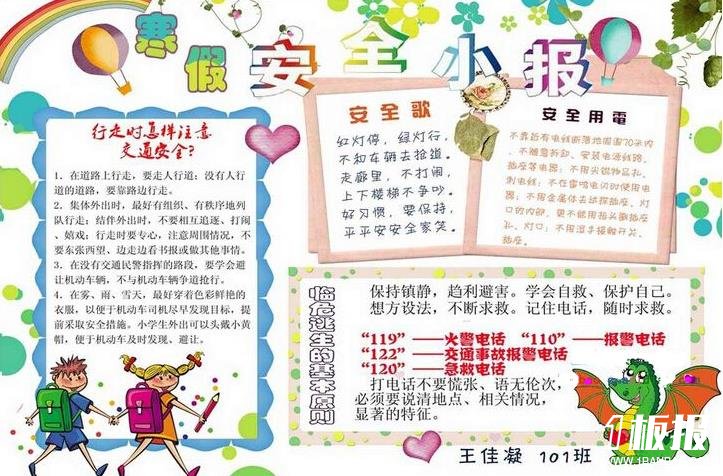 寒假安全小报
行走时怎样注意
交通安全?
1．在道路上行走，要走人行道；没有人行
道的道路，要靠路边行走。
2．集体外出时，最好有组织、有秩序地列
队行走；结伴外出时，不要相互追逐、打闹
、嬉戏；行走时要专心，注意周围情况，不
要东张西望、边走边看书报或做其他事情。
3．在没有交通民警指挥的路段，要学会避
让机动车辆，不与机动车辆争道抢行。
4．在雾、雨、雪天，最好穿着色彩鲜艳的
衣服，以便于机动车司机尽早发现目标，提
前采取安全措施。小学生外出可以头戴小黄
帽，便于机动车及时发现、避让。
安全歌
红灯停，绿灯行，
不和车辆去抢道。
走廊里，不打闹，
上下楼梯不争吵。
好习惯，要保持，
平平安安全家笑。
安全用電
不靠近有电线断落地周围20米内
、不随意拆卸、安装电源线路、
插座等电器；不用尖锐物品扎、
刺电线；不在雷鸣电闪时使用电
器；不用金属体去试探插座、灯
口的内部，更不能用指头触插座
孔、灯口；不用湿手接触开关、
插座。
临危逃生的基本原则
保持镇静，趋利避害。学会自救、保护自己。
想方设法，不断求救。记住电话，随时求救。
“119”——火警电话 “110”——报警电话
“122”——交通事故报警电话
“120”——急救电话
打电话不要慌张、语无伦次，
必须要说清地点、相关情况，
显著的特征。
王佳凝 101班
板报